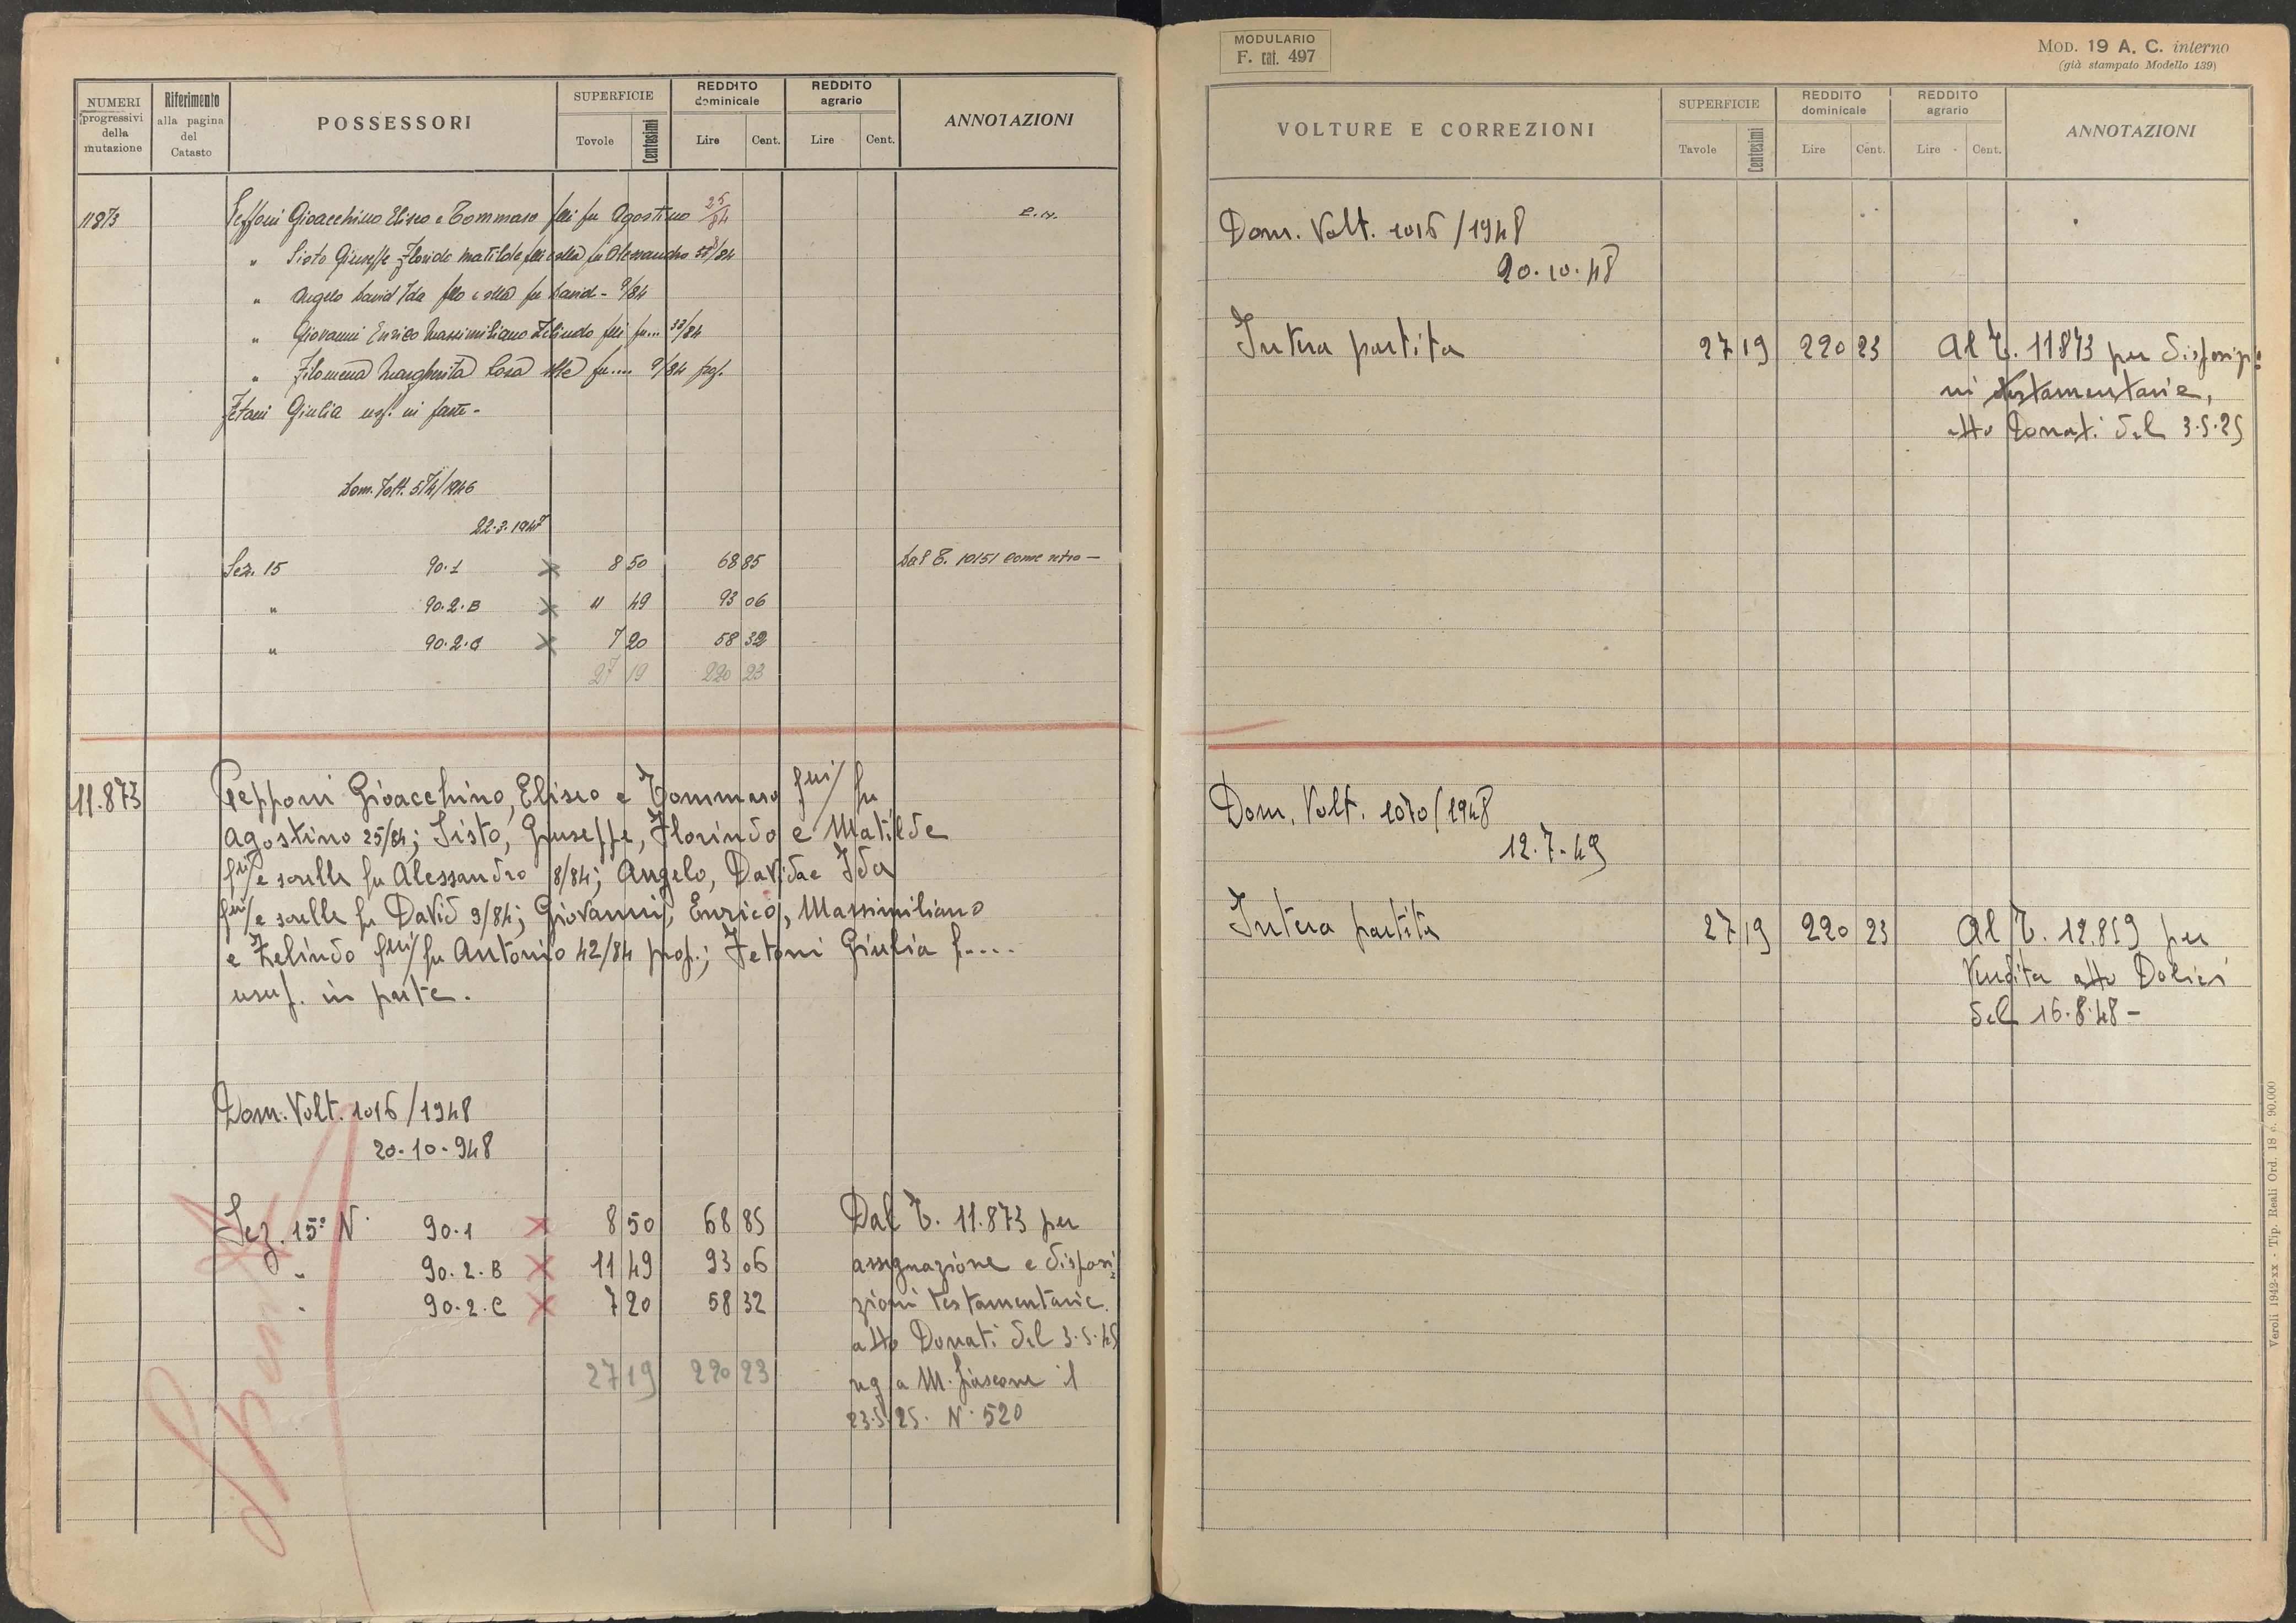 NUMERI progressivi della mutazione
Riferimento alla pagina del Catasto
POSSESSORI
SUPERFICIE
Tovole Centesimi
REDDITO dominicale
Lire Cent.
REDDITO agrario
Lire Cent.
ANNOTAZIONI
11873 Gioacchino Eliseo e Tommaso flli fu Agostino 25/84
" Sisto Giuseppe Florido Matilde flli e slla fu Alessandro /84
" Angelo David Ida fllo e slla fu David - 9/84
" Giovanni Enrico Massimiliano Zelindo flli fu... 33/84
" Filomena Margherita Rosa slle fu.... 9/84 prop.
Fetoni Giulia usf. in parte -
Dom. Volt. 574/1946
22.3.1947
Sez. 15 90.1 × 8 50 68 85 Dal T. 10151 come retro —
" 90.2.B × 11 49 93 06
" 90.2.C × 7 20 58 32
27 19 220 23
11.873 Pepponi Gioacchino, Eliseo e Tommaso flli/ fu
Agostino 25/84; Sisto, Giuseppe, Florindo e Matilde
flli/ e sorelle fu Alessandro 8/84; Angelo, David e Ida
flli/ e sorelle fu David 9/84; Giovanni, Enrico, Massimiliano
e Zelindo flli/ fu Antonio 42/84 prop.; Fetoni Giulia f....
usuf. in parte.
Dom. Volt. 1016/1948
20-10-948
Sez. 15ª N. 90.1 × 8 50 68 85 Dal T. 11.873 per
" 90.2.B × 11 49 93 06 assegnazione e disposi
" 90.2.C × 7 20 58 32 zioni testamentarie.
atto Donati del 3.5.25
27 19 220 23 reg a M. fiascone il
23.5.25. N. 520
MODULARIO
F. cat. 497
MOD. 19 A. C. interno
(già stampato Modello 139)
VOLTURE E CORREZIONI
SUPERFICIE
Tavole Centesimi
REDDITO dominicale
Lire Cent.
REDDITO agrario
Lire Cent.
ANNOTAZIONI
Dom. Volt. 1016/1948
20.10.48
Intera partita 27 19 220 23 Al T. 11873 per disposizio
ni testamentarie,
atto Donati del 3.5.25
Dom. Volt. 1070/1948
12.7.49
Intera partita 27 19 220 23 Al T. 12.819 per
Vendita atto Dolici
del 16.8.48 -
Veroli 1942-xx - Tip. Reali Ord. 18 c. 90.000